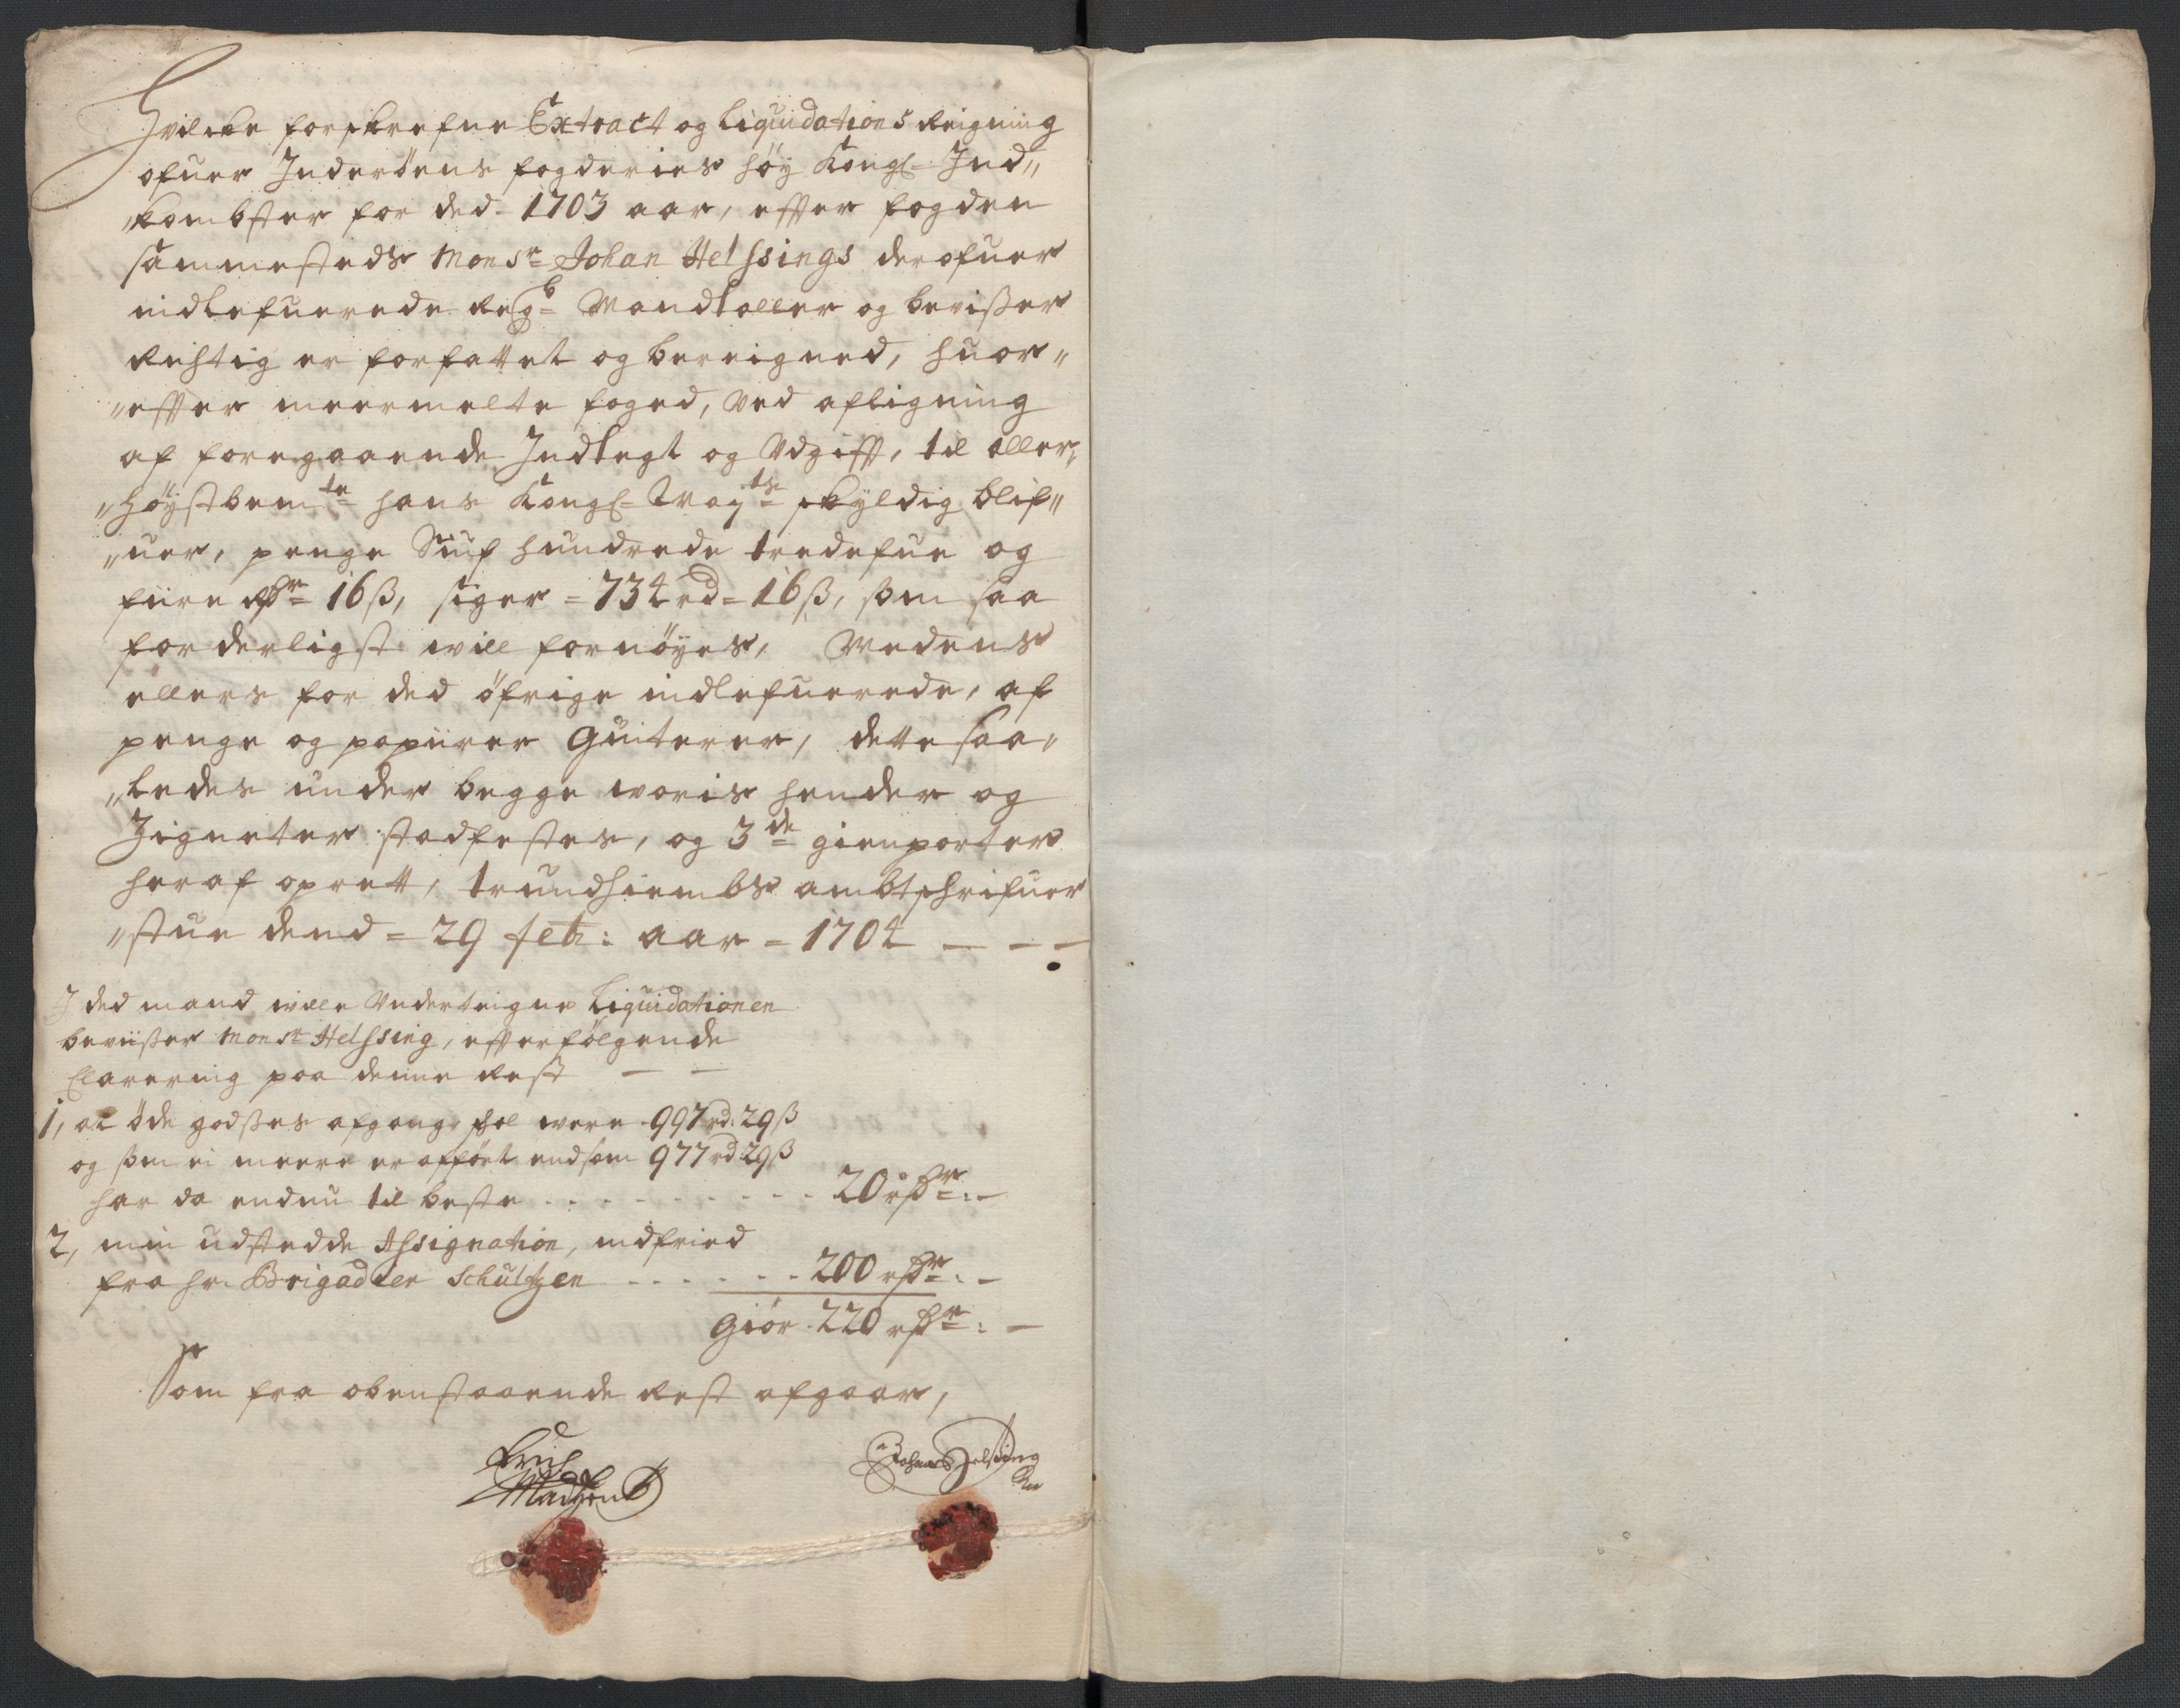 Hvilcke forskrefne Extract og Liquidations Reigning
ofuer Inderöens fogderies höy Kongl: Ind„
„kombster for ded 1703 aar, effter fogden
sammesteds Monsr Johan Helssings derofuer
indlefuerede Regb= Mandtaller og bevißer
Richtig er forfattet og bereigned, huor„
„effter meermelte foged, ved afligning
af foregaaende Indtegt og Udgifft, til aller„
„höystbemte hans Kongl= Mayts skyldig blif„
„uer, penge Siuf hundrede tredefue og
fiire Rdr 16 ß, siger = 734 rd = 16 ß, som saa
forderligst will fornöyes, Medens
ellers for ded öfrige indlefuerede, af
penge og papiirer Quiterer, dette saa„
„ledes under begge woris hender og
Zigneter stadfestes, og 3de gienparter
heraf oprett, trundhiembs ambtschrifuer
„stue dend = 29 feb: aar = 1704 — — —
I ded mand wille Underteigne Liquidationen
beviißer Monsr Helssing, effterfölgende
Clarering paa denne Rest — —
1, at öde godßes afgang skal were 997 rd: 29 ß
og som ei meere er afført end som 977 rd 29 ß
har da endnu til beste . . . . . . . . . 20 rdr: —
2, min udstedde Assignation, indfried
fra hr: Brigadeer Schultzen . . . . . . 200 rdr: —
Giör 220 rdr: —
Som fra obenstaaende Rest afgaar,
Erich
Madtzen
Johan Helssing